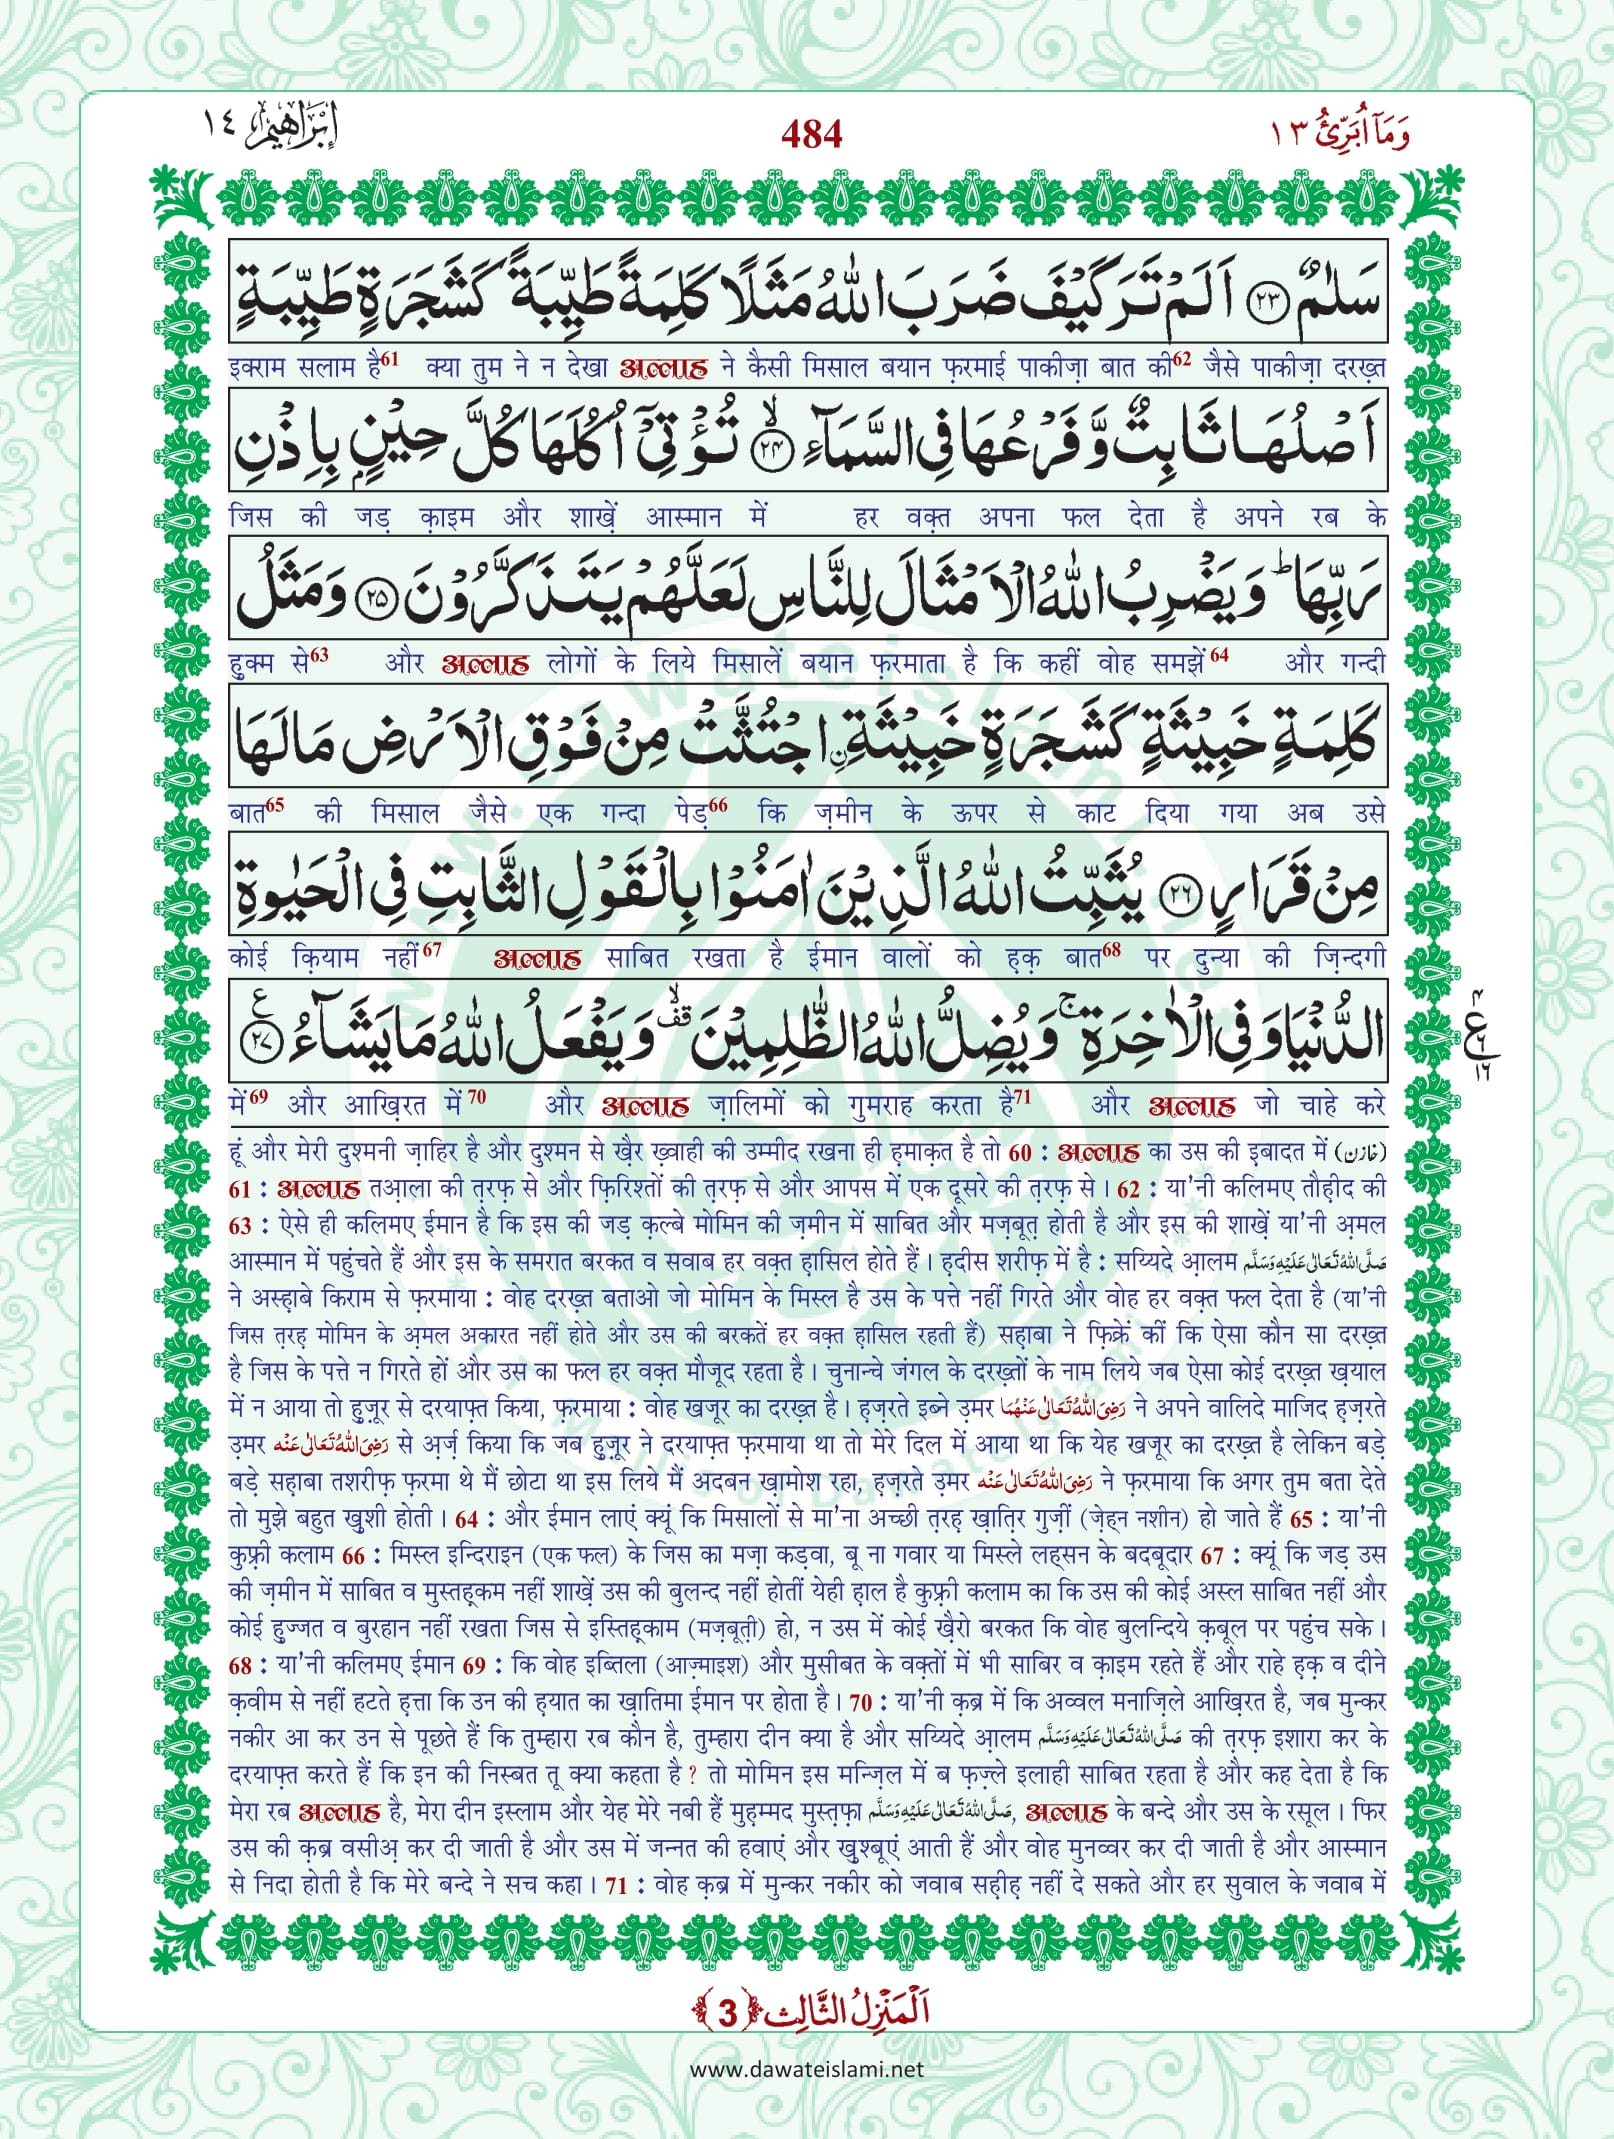 اِبْرٰاهِيْم ١٤
484
وَمَآ اُبَرِّئُ ١٣
سَلٰمٌ ﴿۲۳﴾ اَلَمْ تَرَ كَيْفَ ضَرَبَ اللّٰهُ مَثَلًا كَلِمَةً طَيِّبَةً كَشَجَرَةٍ طَيِّبَةٍ
इक्राम सलाम है61 क्या तुम ने न देखा अल्लाह ने कैसी मिसाल बयान फ़रमाई पाकीज़ा बात की62 जैसे पाकीज़ा दरख़्त
اَصْلُهَا ثَابِتٌ وَّ فَرْعُهَا فِی السَّمَآءِ ﴿۲۴﴾ۙ تُؤْتِیْۤ اُكُلَهَا كُلَّ حِیْنٍۭ بِاِذْنِ
जिस की जड़ क़ाइम और शाख़ें आस्मान में हर वक़्त अपना फल देता है अपने रब के
رَبِّهَا ؕ وَ یَضْرِبُ اللّٰهُ الْاَمْثَالَ لِلنَّاسِ لَعَلَّهُمْ یَتَذَكَّرُوْنَ ﴿۲۵﴾ وَ مَثَلُ
हुक्म से63 और अल्लाह लोगों के लिये मिसालें बयान फ़रमाता है कि कहीं वोह समझें64 और गन्दी
كَلِمَةٍ خَبِیْثَةٍ كَشَجَرَةٍ خَبِیْثَةِ ِ۟اجْتُثَّتْ مِنْ فَوْقِ الْاَرْضِ مَا لَهَا
बात65 की मिसाल जैसे एक गन्दा पेड़66 कि ज़मीन के ऊपर से काट दिया गया अब उसे
مِنْ قَرَارٍ ﴿۲۶﴾ یُثَبِّتُ اللّٰهُ الَّذِیْنَ اٰمَنُوْا بِالْقَوْلِ الثَّابِتِ فِی الْحَیٰوةِ
कोई क़ियाम नहीं67 अल्लाह साबित रखता है ईमान वालों को ह़क़ बात68 पर दुन्या की ज़िन्दगी
الدُّنْیَا وَ فِی الْاٰخِرَةِ ۚ وَ یُضِلُّ اللّٰهُ الظّٰلِمِیْنَ ۙ۫ وَ یَفْعَلُ اللّٰهُ مَا یَشَآءُ ﴿۲۷﴾ ع
۴ ع ۶ ۱۶
में69 और आख़िरत में70 और अल्लाह ज़ालिमों को गुमराह करता है71 और अल्लाह जो चाहे करे
हूं और मेरी दुश्मनी ज़ाहिर है और दुश्मन से ख़ैर ख़्वाही की उम्मीद रखना ही ह़माक़त है तो 60 : अल्लाह का उस की इ़बादत में (خازن)
61 : अल्लाह तआ़ला की त़रफ़ से और फ़िरिश्तों की त़रफ़ से और आपस में एक दूसरे की त़रफ़ से। 62 : या'नी कलिमए तौह़ीद की
63 : ऐसे ही कलिमए ईमान है कि इस की जड़ क़ल्बे मोमिन की ज़मीन में साबित और मज़बूत़ होती है और इस की शाख़ें या'नी अ़मल
आस्मान में पहुंचते हैं और इस के समरात बरकत व सवाब हर वक़्त ह़ासिल होते हैं। ह़दीस शरीफ़ में है : सय्यिदे आ़लम صَلَّى اللّٰهُ تَعَالٰى عَلَيْهِ وَسَلَّم
ने अस्ह़ाबे किराम से फ़रमाया : वोह दरख़्त बताओ जो मोमिन के मिस्ल है उस के पत्ते नहीं गिरते और वोह हर वक़्त फल देता है (या'नी
जिस त़रह़ मोमिन के अ़मल अकारत नहीं होते और उस की बरकतें हर वक़्त ह़ासिल रहती हैं) सह़ाबा ने फ़िक्रें कीं कि ऐसा कौन सा दरख़्त
है जिस के पत्ते न गिरते हों और उस का फल हर वक़्त मौजूद रहता है। चुनान्चे जंगल के दरख़्तों के नाम लिये जब ऐसा कोई दरख़्त ख़याल
में न आया तो हुज़ूर से दरयाफ़्त किया, फ़रमाया : वोह खजूर का दरख़्त है। ह़ज़रते इब्ने उ़मर رَضِىَ اللّٰهُ تَعَالٰى عَنْهُمَا ने अपने वालिदे माजिद ह़ज़रते
उ़मर رَضِىَ اللّٰهُ تَعَالٰى عَنْه से अ़र्ज़ किया कि जब हुज़ूर ने दरयाफ़्त फ़रमाया था तो मेरे दिल में आया था कि येह खजूर का दरख़्त है लेकिन बड़े
बड़े सह़ाबा तशरीफ़ फ़रमा थे मैं छोटा था इस लिये मैं अदबन ख़ामोश रहा, ह़ज़रते उ़मर رَضِىَ اللّٰهُ تَعَالٰى عَنْه ने फ़रमाया कि अगर तुम बता देते
तो मुझे बहुत ख़ुशी होती। 64 : और ईमान लाएं क्यूं कि मिसालों से मा'ना अच्छी त़रह़ ख़ात़िर गुज़ीं (ज़ेह्न नशीन) हो जाते हैं 65 : या'नी
कुफ़्री कलाम 66 : मिस्ल इन्दिराइन (एक फल) के जिस का मज़ा कड़वा, बू ना गवार या मिस्ले लह्सन के बदबूदार 67 : क्यूं कि जड़ उस
की ज़मीन में साबित व मुस्तह़्कम नहीं शाख़ें उस की बुलन्द नहीं होतीं येही ह़ाल है कुफ़्री कलाम का कि उस की कोई अस्ल साबित नहीं और
कोई हुज्जत व बुरहान नहीं रखता जिस से इस्तिह़्काम (मज़बूत़ी) हो, न उस में कोई ख़ैरो बरकत कि वोह बुलन्दिये क़बूल पर पहुंच सके।
68 : या'नी कलिमए ईमान 69 : कि वोह इब्तिला (आज़्माइश) और मुसीबत के वक़्तों में भी साबिर व क़ाइम रहते हैं और राहे ह़क़ व दीने
क़वीम से नहीं हटते ह़त्ता कि उन की ह़यात का ख़ातिमा ईमान पर होता है। 70 : या'नी क़ब्र में कि अव्वल मनाज़िले आख़िरत है, जब मुन्कर
नकीर आ कर उन से पूछते हैं कि तुम्हारा रब कौन है, तुम्हारा दीन क्या है और सय्यिदे आ़लम صَلَّى اللّٰهُ تَعَالٰى عَلَيْهِ وَسَلَّم की त़रफ़ इशारा कर के
दरयाफ़्त करते हैं कि इन की निस्बत तू क्या कहता है ? तो मोमिन इस मन्ज़िल में ब फ़ज़्ले इलाही साबित रहता है और कह देता है कि
मेरा रब अल्लाह है, मेरा दीन इस्लाम और येह मेरे नबी हैं मुह़म्मद मुस्त़फ़ा صَلَّى اللّٰهُ تَعَالٰى عَلَيْهِ وَسَلَّم, अल्लाह के बन्दे और उस के रसूल। फिर
उस की क़ब्र वसीअ़ कर दी जाती है और उस में जन्नत की हवाएं और ख़ुश्बूएं आती हैं और वोह मुनव्वर कर दी जाती है और आस्मान
से निदा होती है कि मेरे बन्दे ने सच कहा। 71 : वोह क़ब्र में मुन्कर नकीर को जवाब सह़ीह़ नहीं दे सकते और हर सुवाल के जवाब में
اَلْمَنْزِلُ الثَّالِث ﴿3﴾
www.dawateislami.net